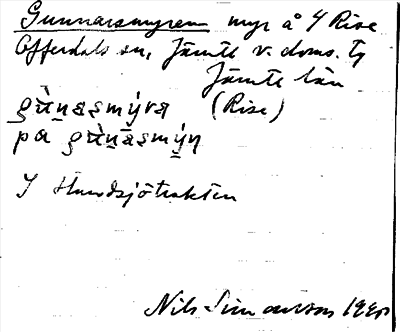 Gunnarsmyren myr å Y Rise
Offerdals sn, Jämtl v. doms. tg
Jämtl län
gùnasmýra (Rise)
pa gùnasmýn
I Hundsjötrakten
Nils Simonsson 1940